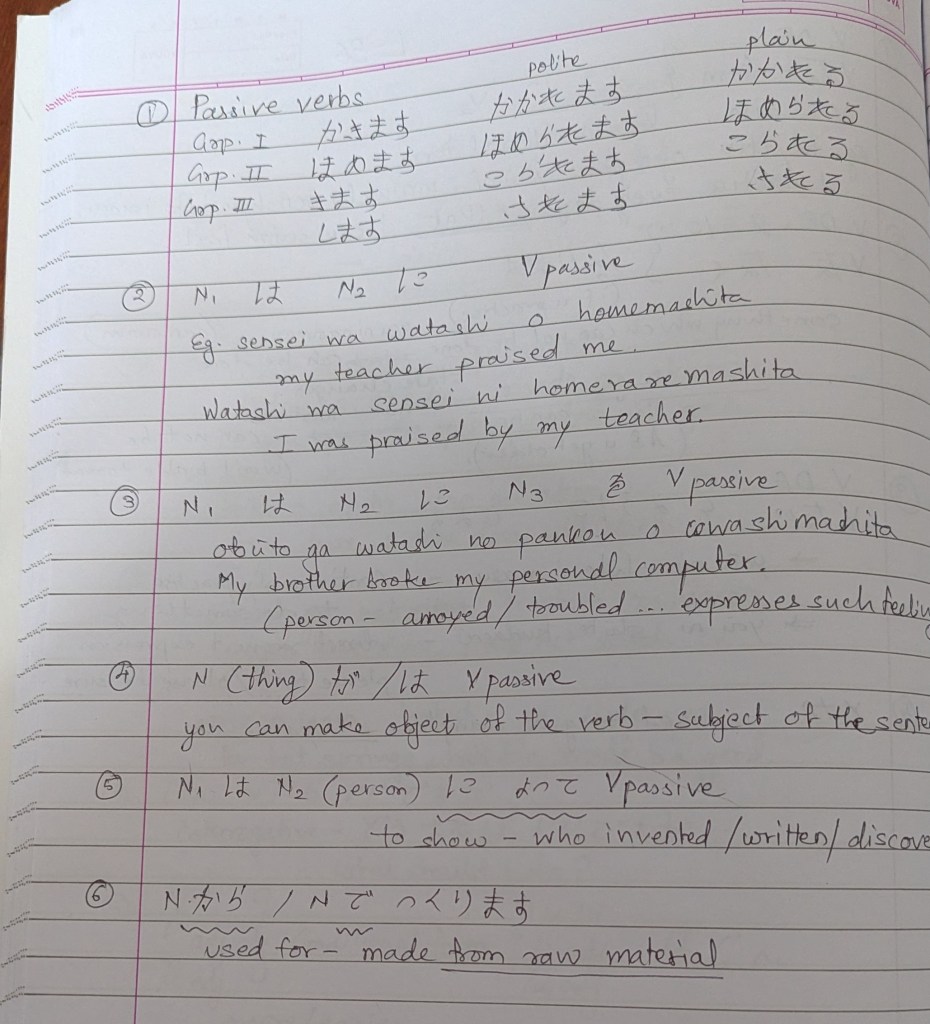 polite plain
① Passive verbs かかれます かかれる
Grp. I かきます ほめられます ほめられる
Grp. II ほめます こられます こられる
Grp. III きます されます される
します
② N₁ は N₂ に V passive
Eg. sensei wa watashi o homemashita
my teacher praised me.
Watashi wa sensei ni homeraremashita
I was praised by my teacher.
③ N₁ は N₂ に N₃ を V passive
otouto ga watashi no pankon o cowashimashita
My brother broke my personal computer.
(person - annoyed / troubled ... expresses such feelin
④ N (thing) が / は V passive
you can make object of the verb - subject of the sente
⑤ N₁ は N₂ (person) に よって V passive
to show - who invented / written / discove
⑥ N から / N で つくります
used for - made from raw material